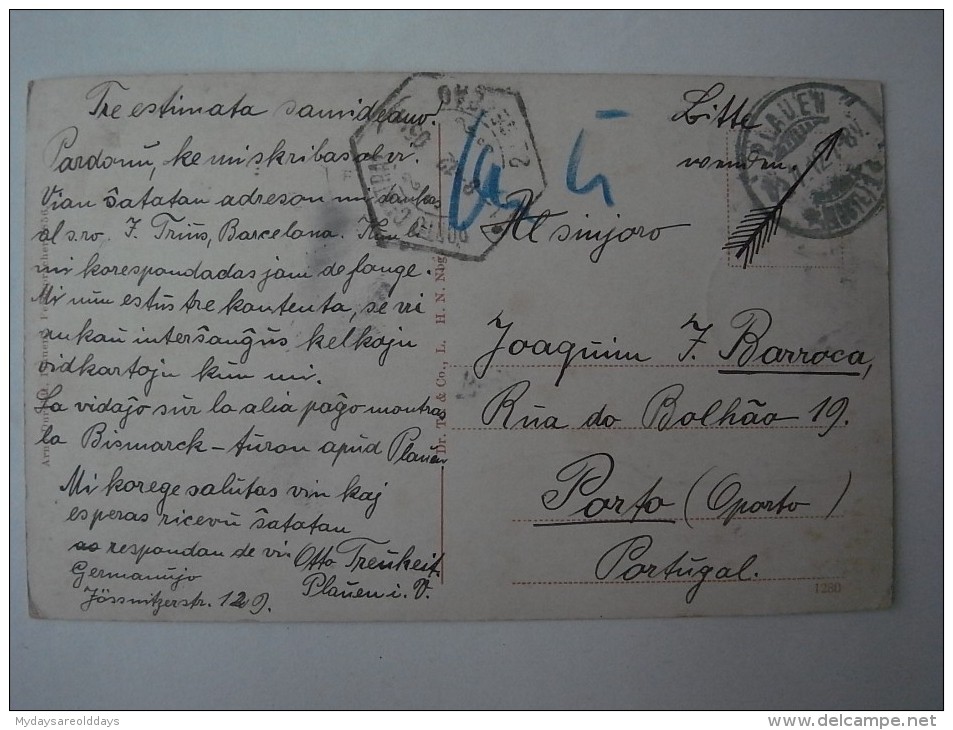 Tre estimata samideano!
Pardonu, ke mi skribas al vi.
Vian ŝatatan adreson mi dankas
al s.ro. J. Triūs, Barcelona.
mi korespondadas jam de longe.
Mi nūn estūs tre kontenta, se vi
ankaū interŝanĝūs kelkajn
vidkartojn kūn mi.
La vidaĵo sūr la alia paĝo montras
la Bismarck-tūron apūd Plauen
Mi korege salūtas vin kaj
esperas ricevū ŝatatan
respondon de vi. Otto Treūkeit,
Germanūjo Plaūen i. V.
Jössnitzerstr. 129.
Bitte
wenden
PLAUEN
Al sinjoro
Joaquim J. Barroca,
Rūa do Bolhão 19.
Porto (Oporto)
Portūgal.
Dr. T. & Co., L. H. N. Nbg.
1280
Mydaysareolddays
www.delcampe.net